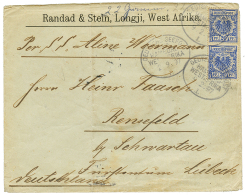 Randad & Stein, Longji, West Afrika.
Per S.S. Aline Woermann
Herr Heinr. Taasch
Rensefeld
by Schwartau
Fürstentum Lübeck
Deutschland